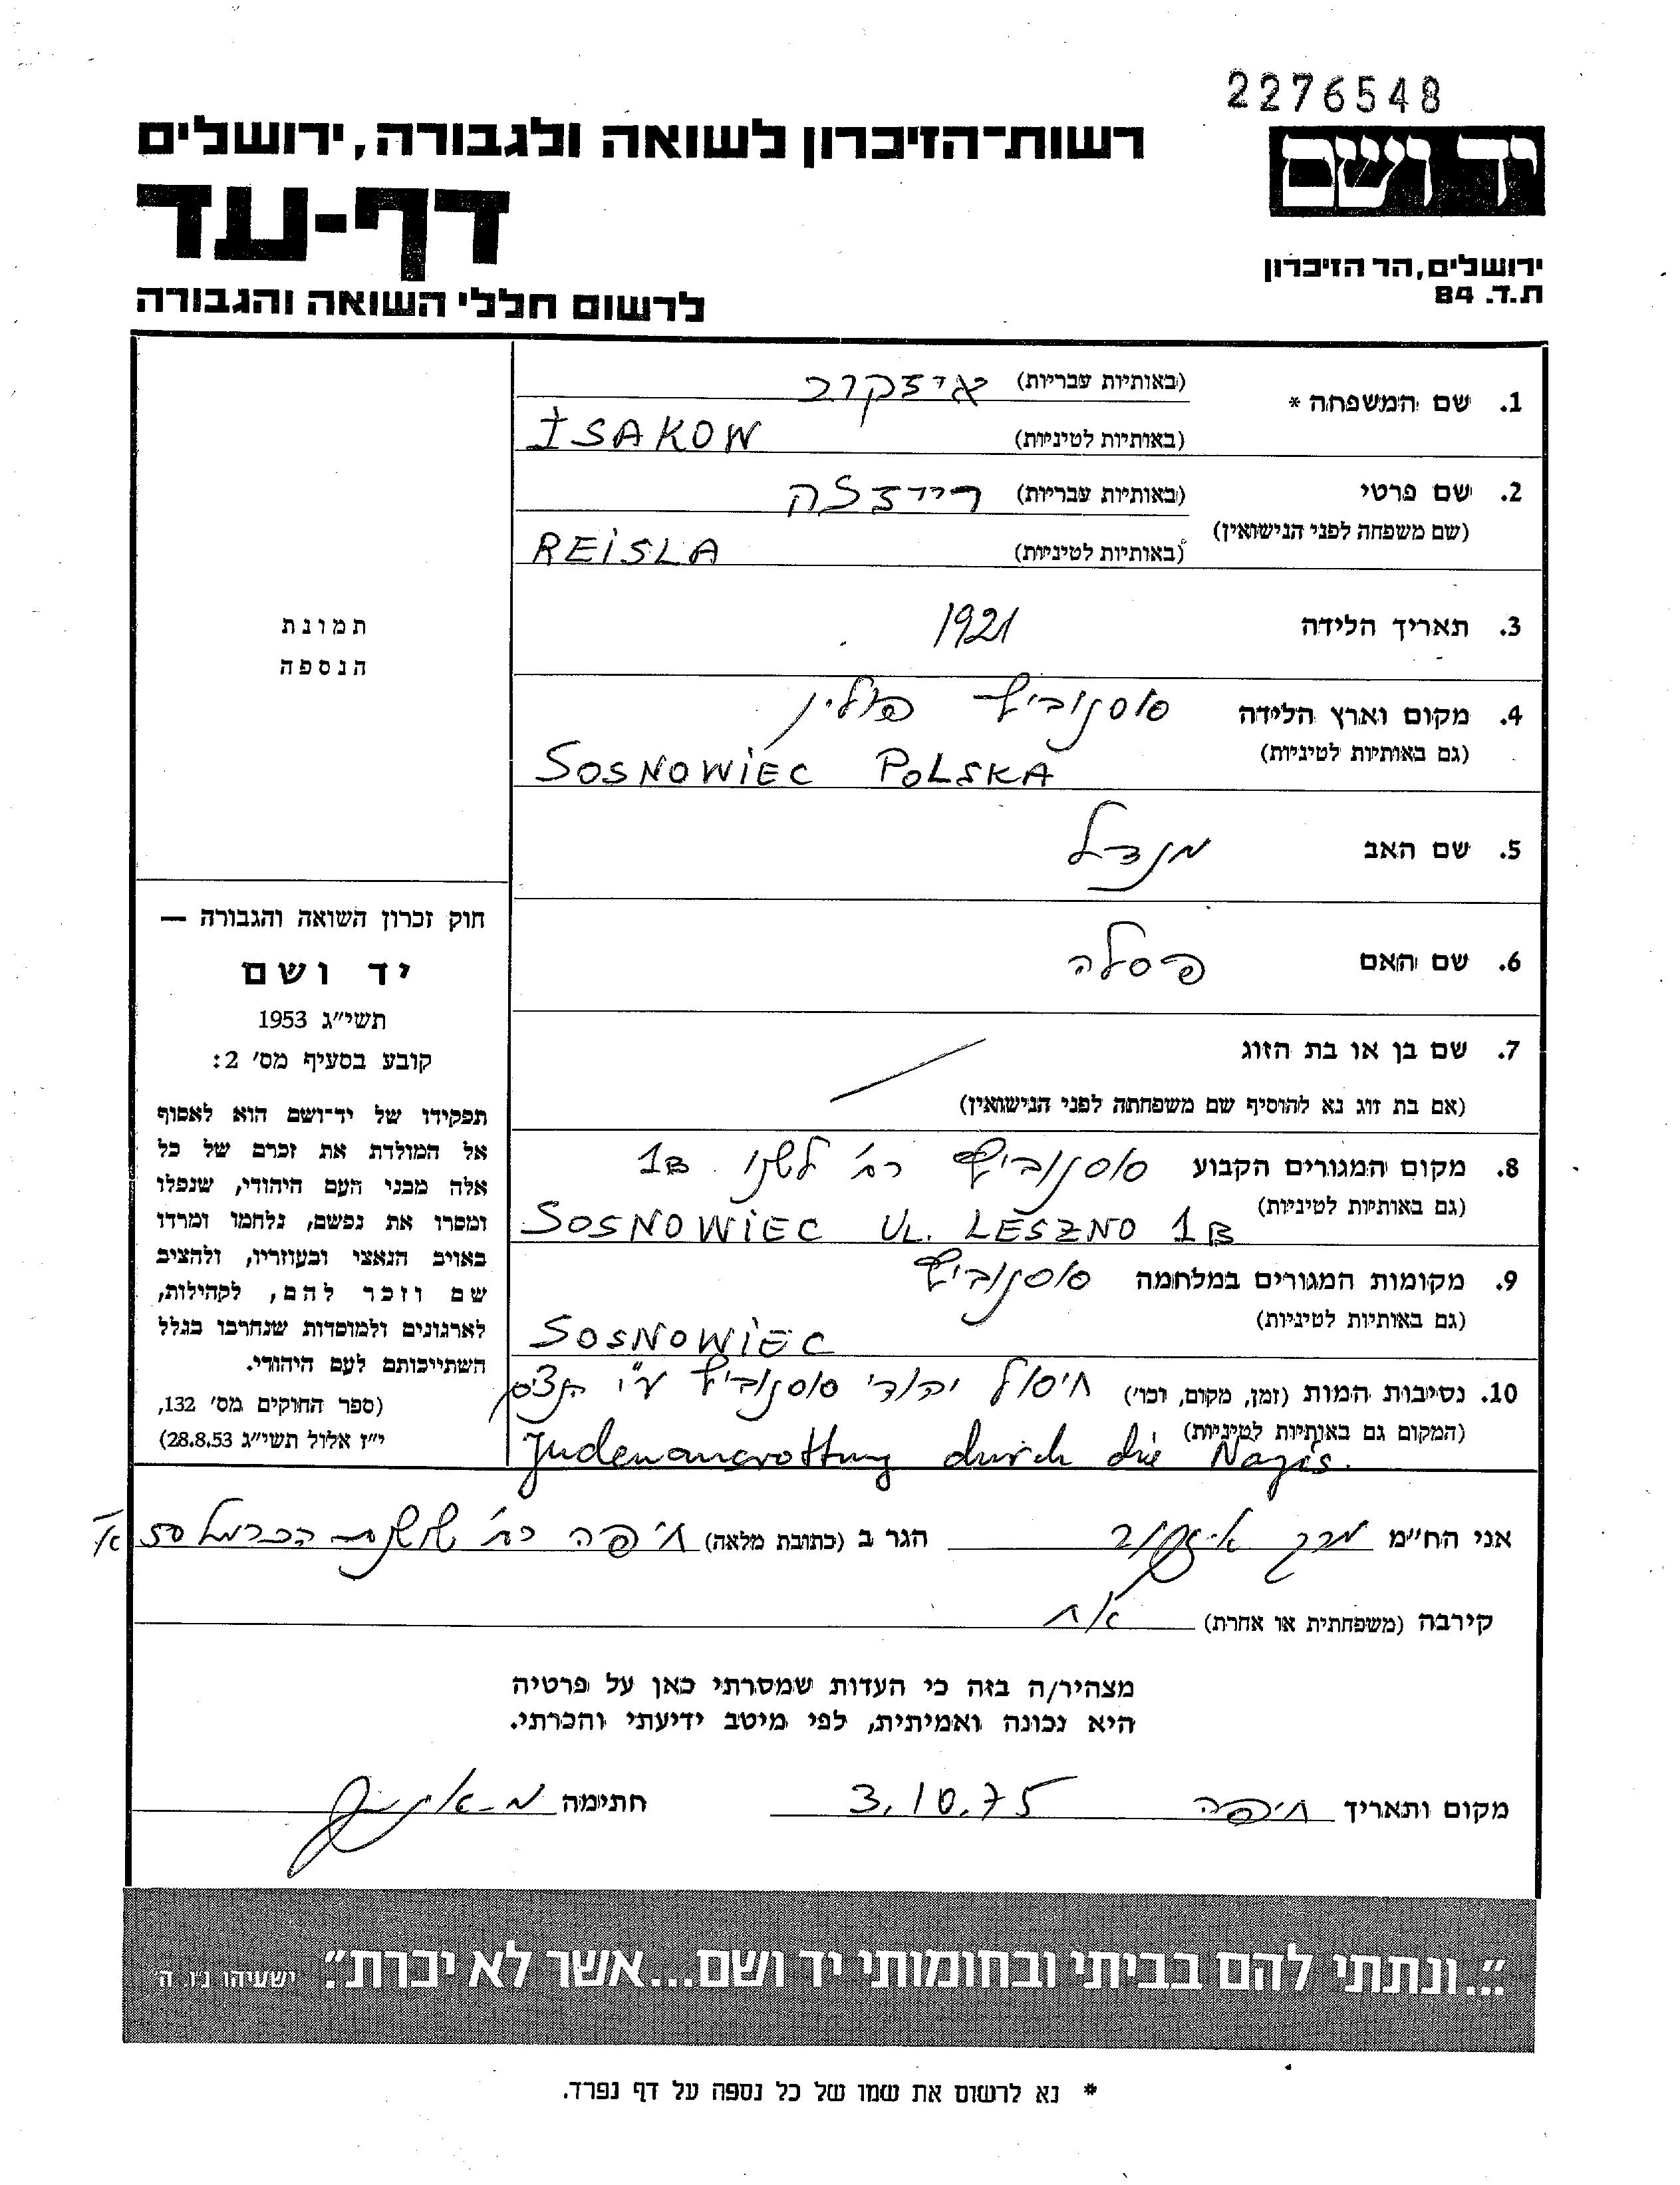 2276548
רשות־הזיכרון לשואה ולגבורה, ירושלים
יד ושם
דף-עד
ירושלים, הר הזיכרון
ת.ד. 84
לרשום חללי השואה והגבורה
1. שם המשפחה * (באותיות עבריות) איזקוב
(באותיות לטיניות) ISAKOW
2. שם פרטי (באותיות עבריות) ריידזלה
(שם משפחה לפני הנישואין)
(באותיות לטיניות) REiSLA
3. תאריך הלידה 1921
תמונת
הנספה
4. מקום וארץ הלידה סוסנוביץ פולין
(גם באותיות לטיניות)
SOSNOWiEC POLSKA
5. שם האב מנדל
6. שם האם פסלה
7. שם בן או בת הזוג
(אם בת זוג נא להוסיף שם משפחתה לפני הנישואין)
8. מקום המגורים הקבוע סוסנוביץ רח' לשנו 1B
(גם באותיות לטיניות)
SOSNOWiEC UL. LESZNO 1B
9. מקומות המגורים במלחמה סוסנוביץ
(גם באותיות לטיניות)
SOSNOWiEC
10. נסיבות המות (זמן, מקום, וכו') חיסול יהודי סוסנוביץ ע"י הנצים
(המקום גם באותיות לטיניות)
Judenausrottung durch die Nazis.
חוק זכרון השואה והגבורה —
יד ושם
תשי״ג 1953
קובע בסעיף מס׳ 2:
תפקידו של יד־ושם הוא לאסוף
אל המולדת את זכרם של כל
אלה מבני העם היהודי, שנפלו
ומסרו את נפשם, נלחמו ומרדו
באויב הנאצי ובעוזריו, ולהציב
שם וזכר להם, לקהילות,
לארגונים ולמוסדות שנחרבו בגלל
השתייכותם לעם היהודי.
(ספר החוקים מס׳ 132,
י״ז אלול תשי״ג 28.8.53)
אני הח״מ מרק איזקוב הגר ב (כתובת מלאה) חיפה רח' שושנת הכרמל 50 א'
קירבה (משפחתית או אחרת) אח
מצהיר/ה בזה כי העדות שמסרתי כאן על פרטיה
היא נכונה ואמיתית, לפי מיטב ידיעתי והכרתי.
מקום ותאריך חיפה 3.10.75 חתימה
"...ונתתי להם בביתי ובחומותי יד ושם...אשר לא יכרת". ישעיהו נ״ו, ה׳
* נא לרשום את שמו של כל נספה על דף נפרד.